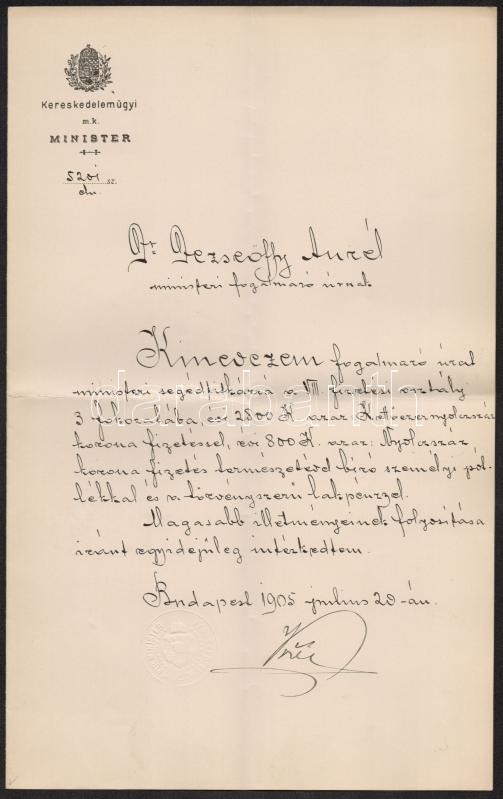 Kereskedelemügyi
m.k.
MINISTER
5201 sz.
eln.
Dr Dezseőffy Aurél
ministeri fogalmazó úrnak
Kinevezem fogalmazó urat
ministeri segédtitkárrá a VIII fizetési osztály
3 fokozatába, évi 2800 K. azaz Kettőezernyolczszáz
korona fizetéssel, évi 800 K. azaz: Nyolczszáz
korona fizetés természetével biró személyi pót-
lékkal és a törvényszerű lakpénzzel.
Magasabb illetményeinek folyósítása
iránt egyidejűleg intézkedtem.
Budapest 1905 julius 20-án.
darabanth.com